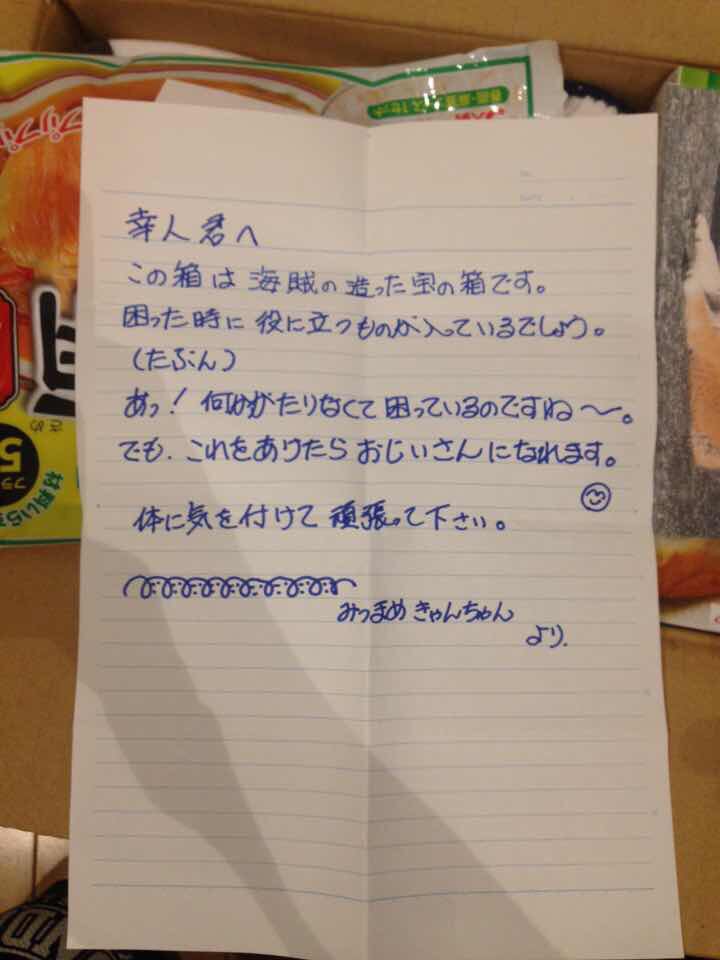 幸人君へ
この箱は海賊の造った宝の箱です。
困った時に役に立つものが入っているでしょう。
(たぶん)
あっ! 何かがたりなくて困っているのですね〜。
でも、これをありたらおじいさんになれます。
体に気を付けて頑張って下さい。
みつまめきゃんちゃん
より.
プリプリ
5